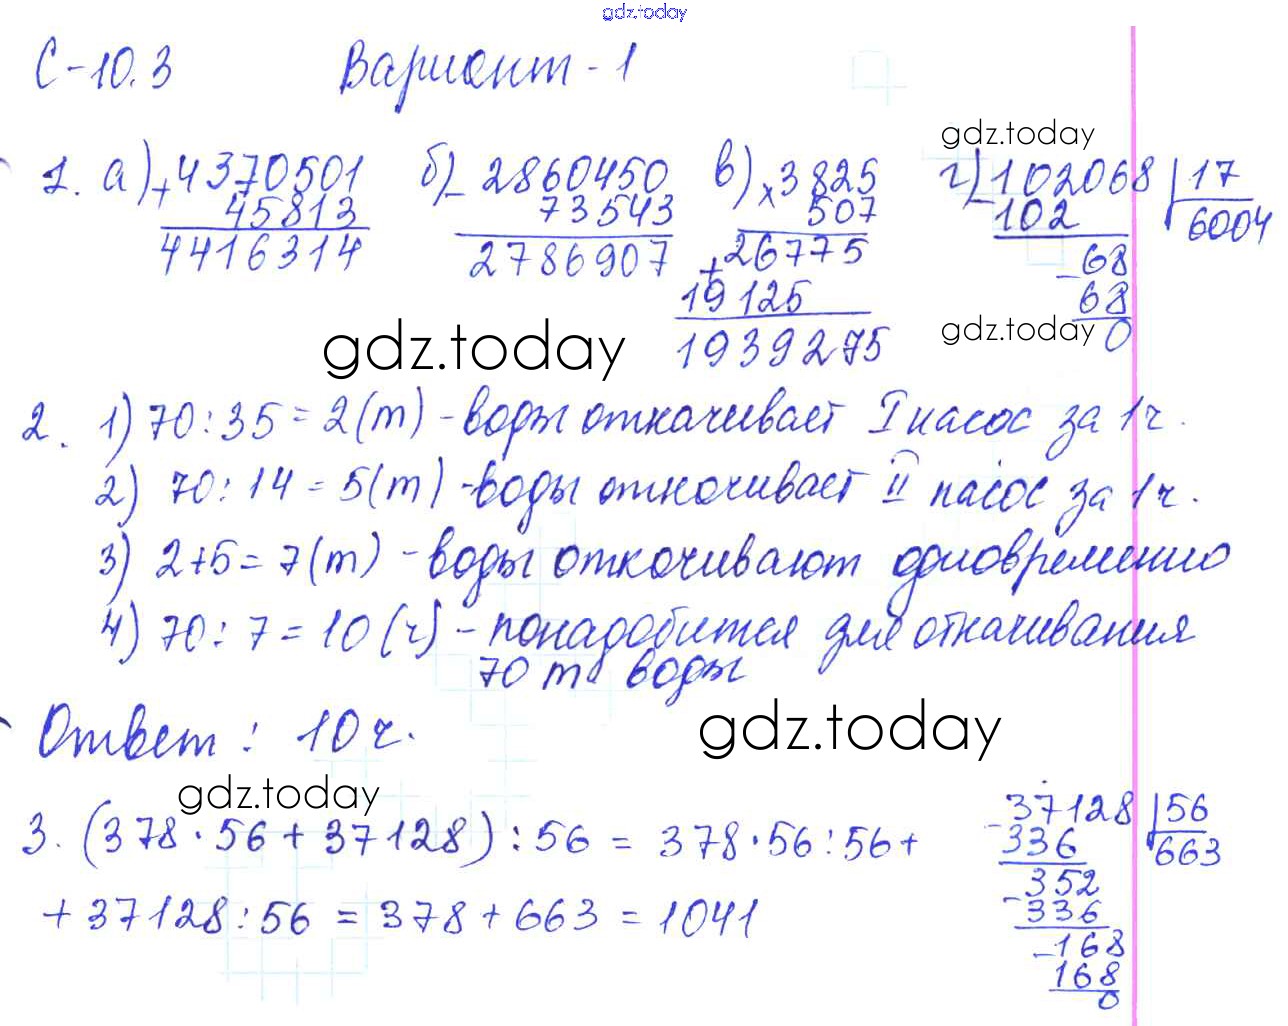 gdz.today
С-10.3 Вариант-1
gdz.today
1. а) + 4370501 б) - 2860450 в) x 3825 г) - 102068 | 17
45813 73543 507 102 6004
4416314 2786907 + 26775 - 68
19125 68
gdz.today gdz.today 0
1939275
2. 1) 70 : 35 = 2 (т) - воды откачивает I насос за 1 ч.
2) 70 : 14 = 5 (т) - воды откачивает II насос за 1 ч.
3) 2 + 5 = 7 (т) - воды откачивают одновременно
4) 70 : 7 = 10 (ч) - понадобится для откачивания
70 т воды
Ответ : 10 ч.
gdz.today
gdz.today
3. (378 · 56 + 37128) : 56 = 378 · 56 : 56 +
+ 37128 : 56 = 378 + 663 = 1041
- 37128 | 56
336 663
- 352
336
- 168
168
0